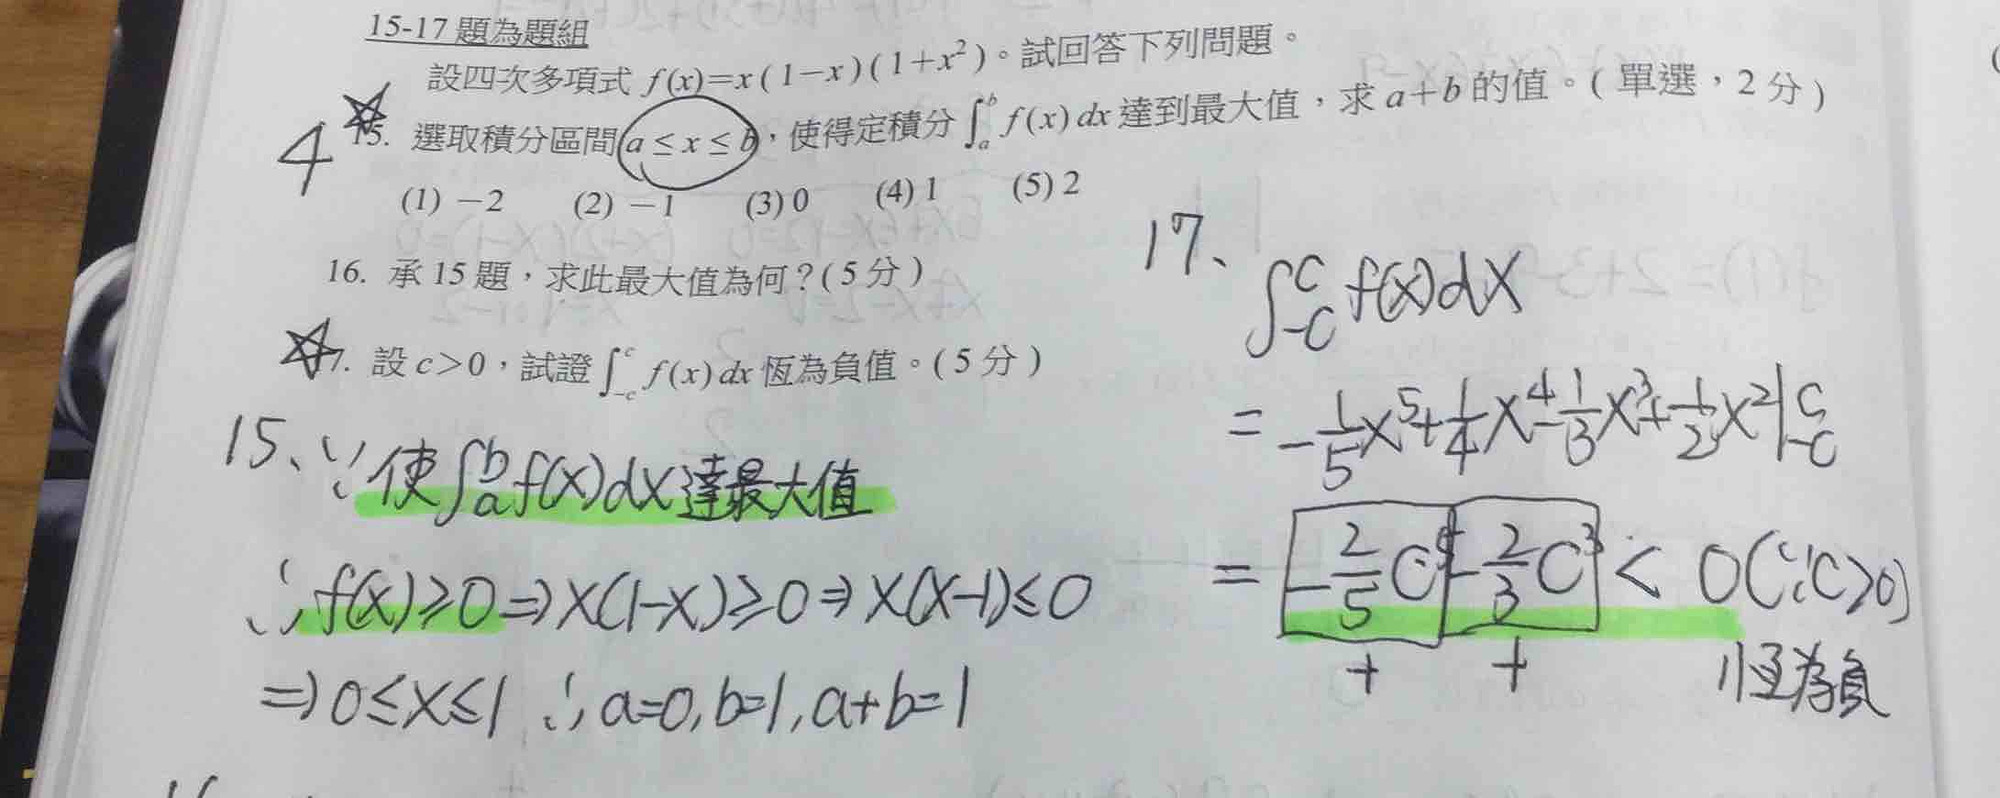 15-17 題為題組
設四次多項式 f(x)=x(1-x)(1+x²)。試回答下列問題。
4 ☆ 15. 選取積分區間 a≤x≤b,使得定積分 ∫_a^b f(x) dx 達到最大值,求 a+b 的值。(單選,2 分)
(1) -2 (2) -1 (3) 0 (4) 1 (5) 2
16. 承 15 題,求此最大值為何?(5 分)
☆ 17. 設 c>0,試證 ∫_{-c}^{c} f(x) dx 恆為負值。(5 分)
15、∵使∫_a^b f(x)dx達最大值
∴f(x)≥0⇒x(1-x)≥0⇒x(x-1)≤0
⇒0≤x≤1 ∴a=0, b=1, a+b=1
17、
∫_{-c}^{c} f(x)dx
= -1/5x⁵+1/4x⁴-1/3x³+1/2x²|_{-c}^{c}
= -2/5c⁵-2/3c³ < 0(∵c>0)
+ + 恆為負